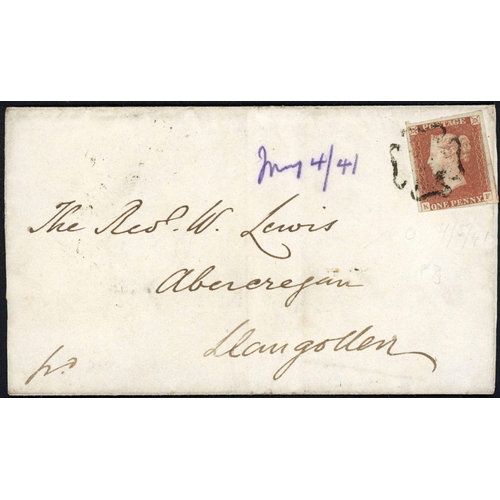 POSTAGE
ONE PENNY
May 4/41
The Revd. W. Lewis
Abercregan
Llangollen
pd